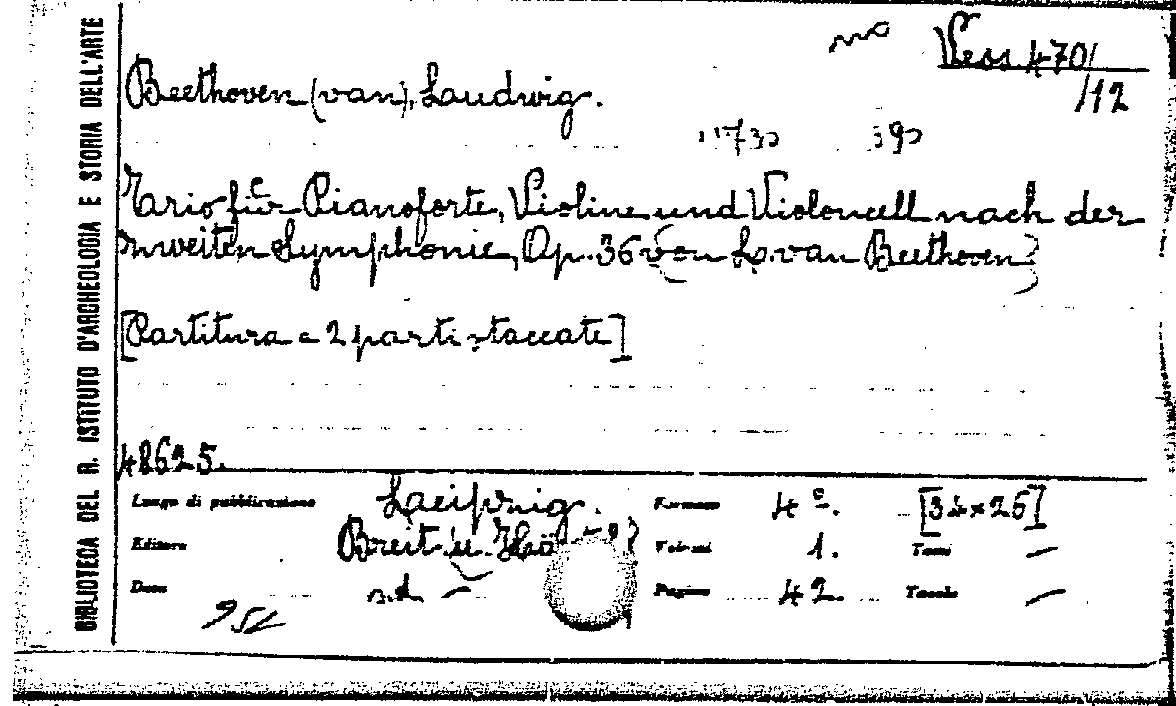 BIBLIOTECA DEL R. ISTITUTO D'ARCHEOLOGIA E STORIA DELL'ARTE
Vess 470/
/12
Beethoven (van), Laudwig.
Trio für Pianoforte, Violine und Violoncell nach der
zweiten Symphonie, Op. 36 (von L. van Beethoven)
[Partitura e 2 parti staccate]
48625.
Luogo di pubblicazione Laeipzig. Formato 4°. [34×26]
Editore Breit. u. Volumi 1. Tomi —
Data s.d. — Pagine 42. Tavole —